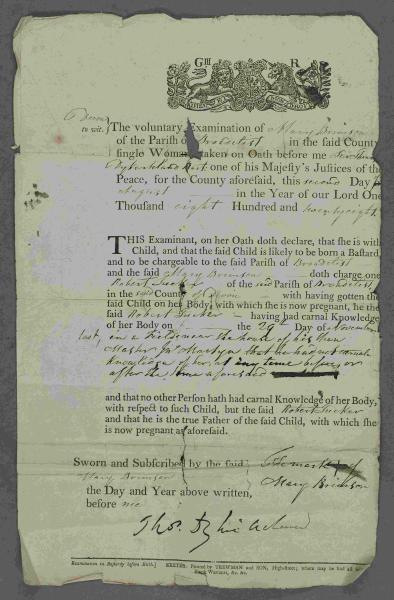 G III R
Devon
to wit.
The voluntary Examination of Mary Brimson
of the Parish of Broadclist in the said County
single Woman taken on Oath before me Sir Thomas
Dyke Acland Bart one of his Majesty's Justices of the
Peace, for the County aforesaid, this second Day
August in the Year of our Lord One
Thousand eight Hundred and
THIS Examinant, on her Oath doth declare, that she is with
Child, and that the said Child is likely to be born a Bastard,
and to be chargeable to the said Parish of Broadclist
and the said Mary Brimson doth charge one
Robert Tucker of the said Parish of Broadclist
in the said County of Devon with having gotten the
said Child on her Body, with which she is now pregnant, he the
said Robert Tucker having had carnal Knowledge
of her Body on the 29th Day of November
last, in a Field near the house of his then
Master Jno Martyn that he had not carnal
Knowledge of her at any time before or
after the time aforesaid
and that no other Person hath had carnal Knowledge of her Body,
with respect to such Child, but the said Robert Tucker
and that he is the true Father of the said Child, with which she
is now pregnant as aforesaid.
Sworn and Subscribed by the said The mark of
Mary Brimson Mary Brimson
the Day and Year above written,
before me
Thos Dyke Acland
Examination in Bastardy before Birth.] EXETER: Printed by TREWMAN and SON, High-street; where may be had all
Warrants, &c. &c.